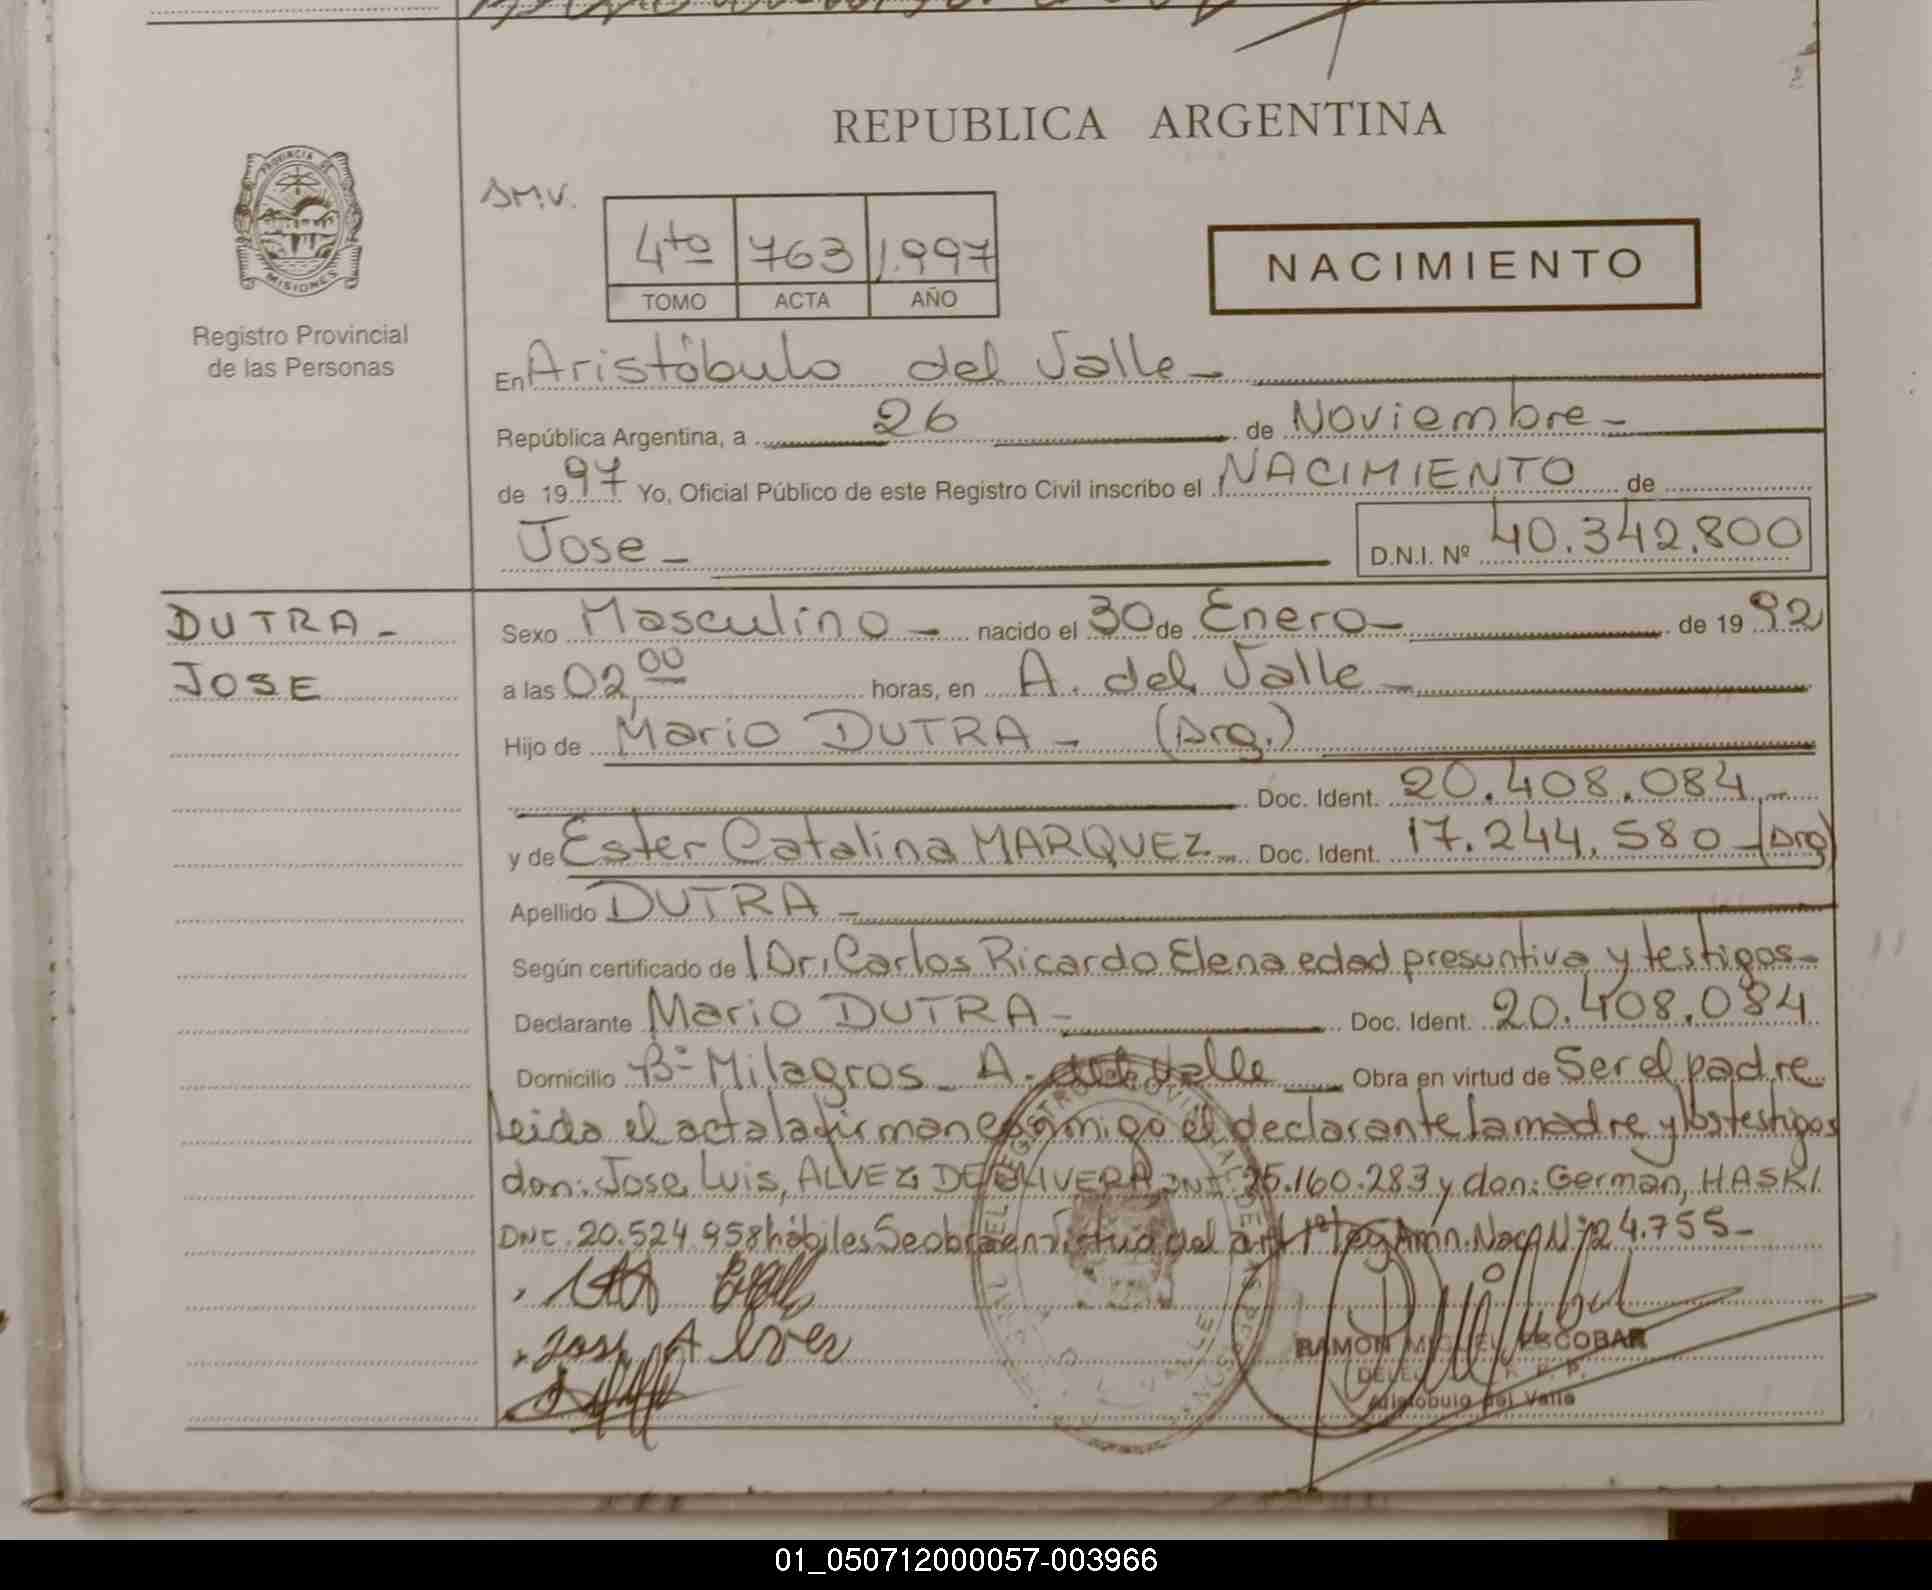 REPUBLICA ARGENTINA
PROVINCIA DE
MISIONES
Registro Provincial
de las Personas
S.M.V.
4to 763 1.997
TOMO ACTA AÑO
NACIMIENTO
En Aristóbulo del Valle
República Argentina, a 26 de Noviembre
de 1997 Yo, Oficial Público de este Registro Civil inscribo el NACIMIENTO de
Jose D.N.I. Nº 40.342.800
DUTRA
JOSE
Sexo Masculino nacido el 30 de Enero de 1992
a las 02,00 horas, en A. del Valle
Hijo de Mario DUTRA (Arg.)
Doc. Ident. 20.408.084
y de Ester Catalina MARQUEZ Doc. Ident. 17.244.580 (Arg)
Apellido DUTRA
Según certificado de Dr. Carlos Ricardo Elena edad presuntiva y testigos
Declarante Mario DUTRA Doc. Ident. 20.408.084
Domicilio Bº Milagros A. del Valle Obra en virtud de Ser el padre
leida el acta la firman conmigo el declarante la madre y los testigos
don: Jose Luis, ALVEZ DE OLIVERA DNI 25.160.283 y don: German, HASKI
DNI. 20.524.958 hábiles Se obra en virtud del art 1º Nac Nº 24.755
Jose Alves
RAMON MIGUEL ESCOBAR
Aristobulo del Valle
01_050712000057-003966